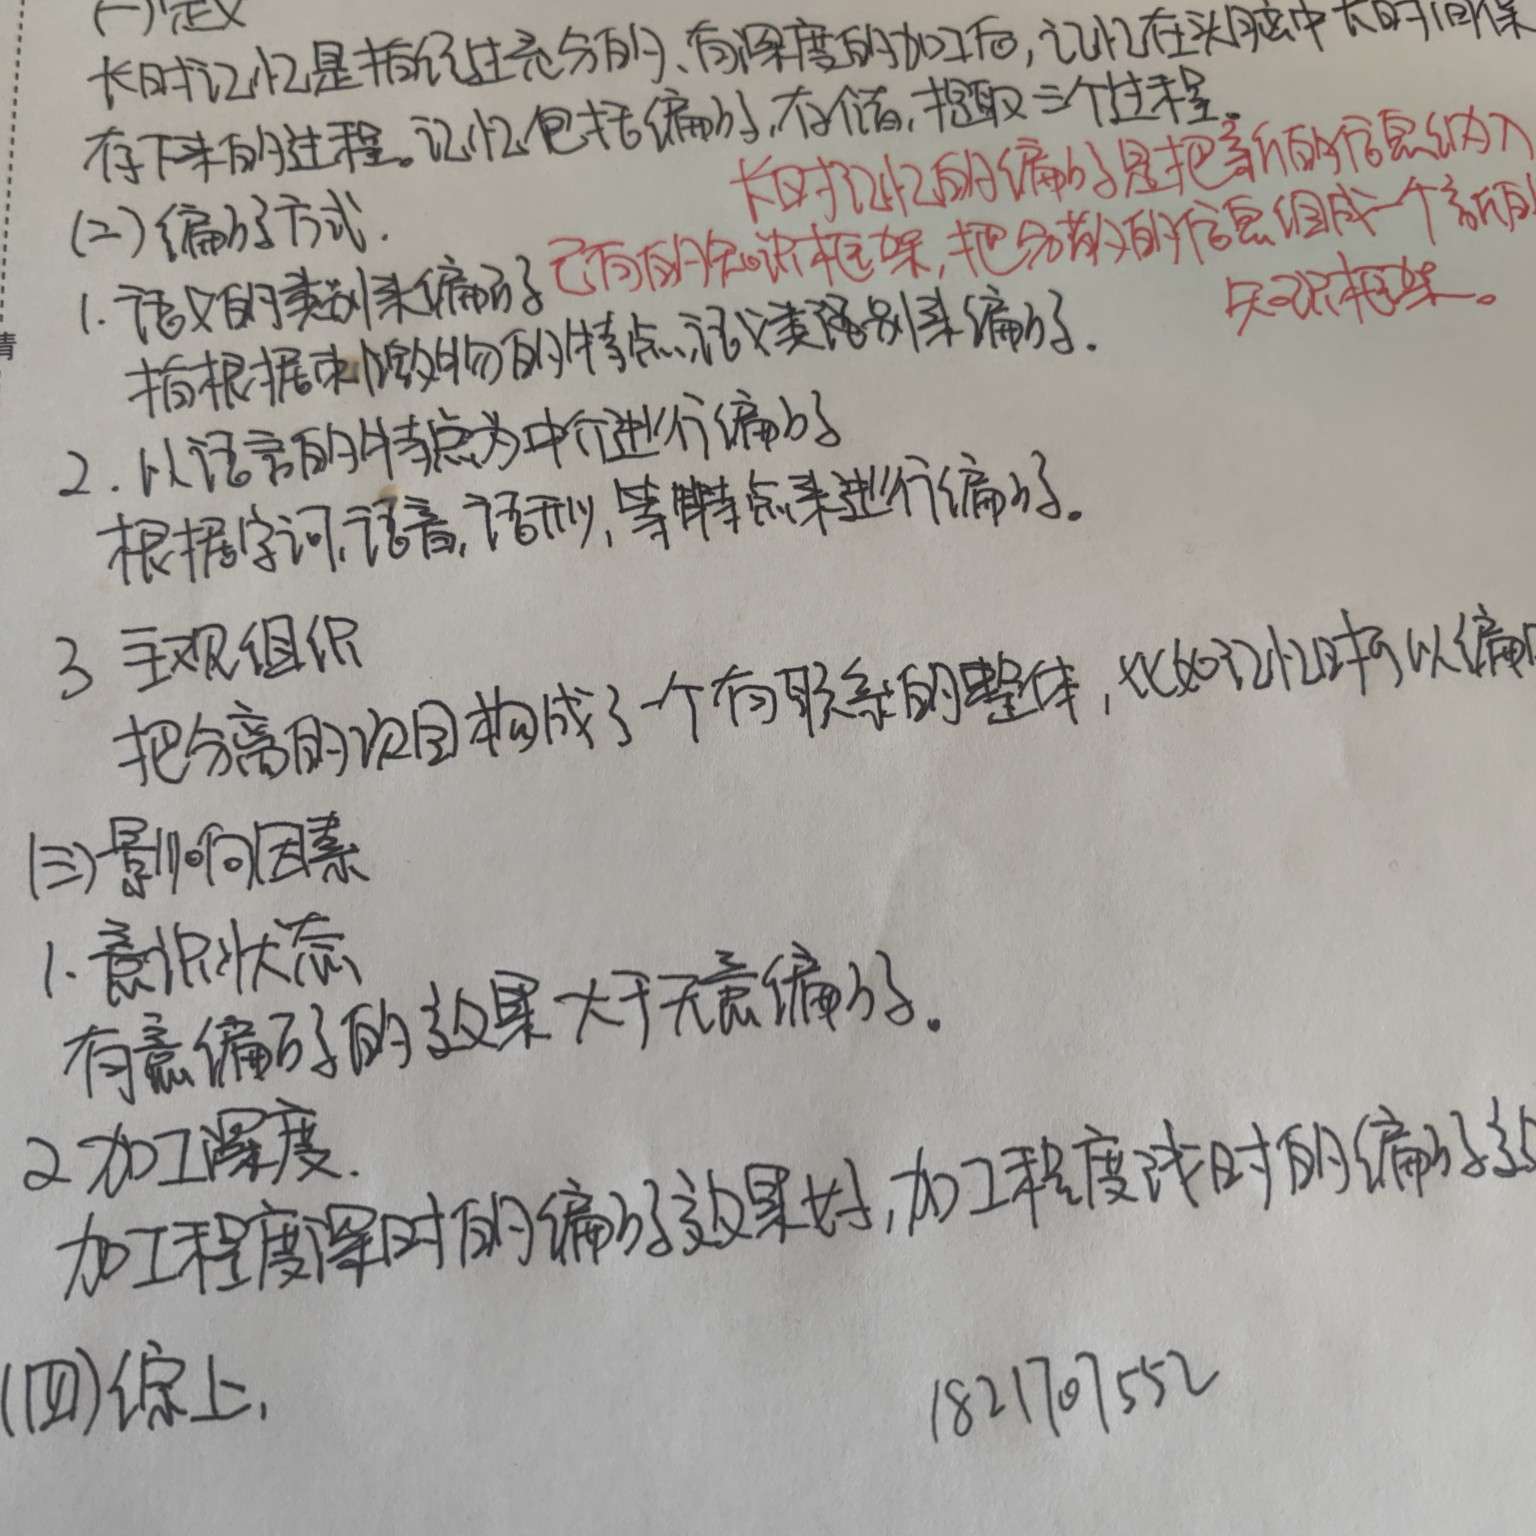 (一)定义
长时记忆是指经过充分的、有深度的加工后,记忆在头脑中长时间保
存下来的过程。记忆包括编码,存储,提取三个过程。
长时记忆的编码是把新的信息纳入
(二)编码方式.
已有的知识框架,把分散的信息组成一个新的
知识框架。
1.语义的类别来编码
指根据刺激物的特点,语义类别来编码.
2.以语言的特点为中介进行编码
根据字词,语音,语形,等特点来进行编码。
3 主观组织
把分离的项目构成了一个有联系的整体,比如记忆时可以编
(三)影响因素
1.意识状态
有意编码的效果大于无意编码。
2加工深度.
加工程度深时的编码效果好,加工程度浅时的编码效
(四)综上,
1821707552
情